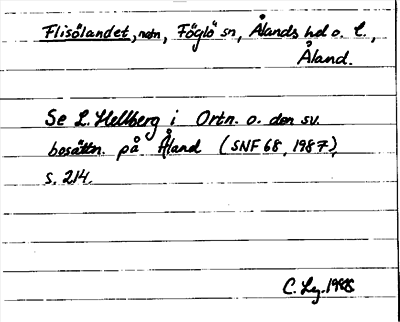 Flisölandet, natn, Föglö sn, Ålands hd o. l.,
Åland.
Se L. Hellberg i Ortn. o. den sv.
bosättn. på Åland (SNF 68, 1987),
s. 214.
C. 1988